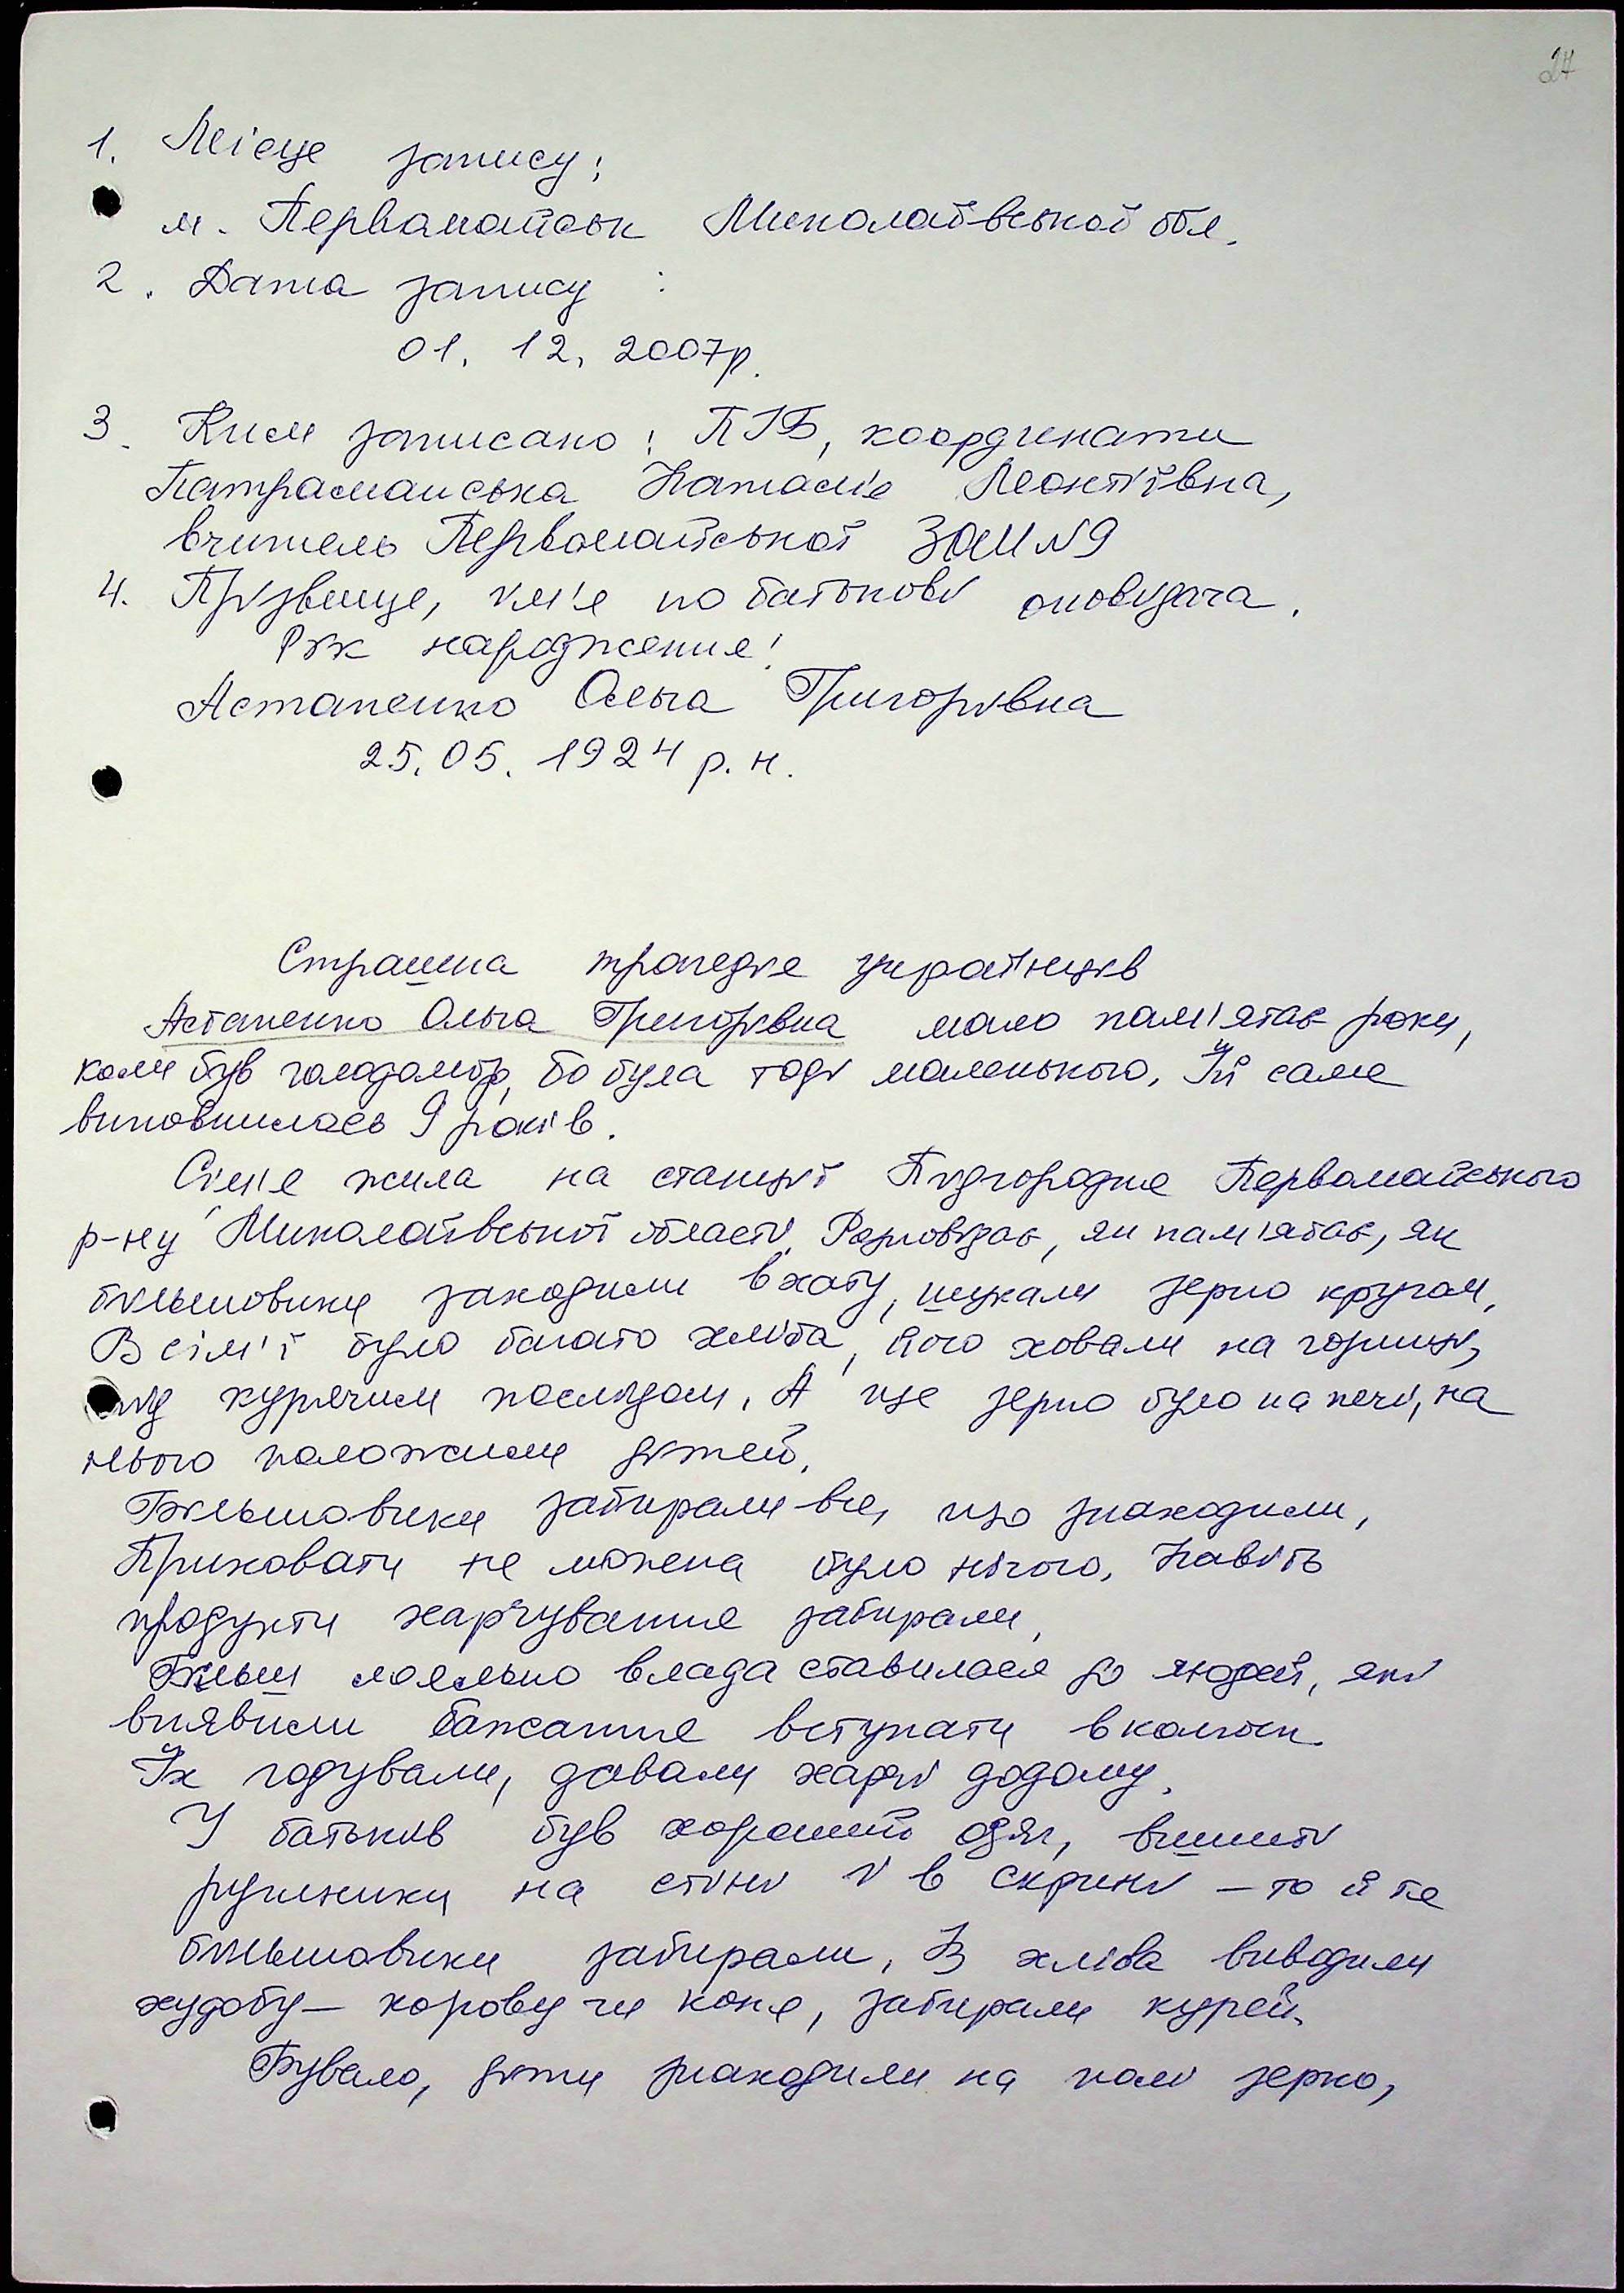 27
1. Місце запису:
м. Первомайськ Миколаївської обл.
2. Дата запису :
01. 12. 2007р.
3. Ким записано: ПІБ, координати
Патраманська Наталія Леонтіївна,
вчитель Первомайської ЗОШ №9
4. Прізвище, ім'я по батькові оповідача.
Рік народження:
Астапенко Ольга Григорівна
25. 05. 1924 р. н.
Страшна трагедія українців
Астапенко Ольга Григорівна мало пам'ятає роки,
коли був голодомор, бо була тоді маленькою. Їй саме
виповнилось 9 років.
Сім'я жила на станції Підгородня Первомайського
р-ну Миколаївської області. Розповідає, як пам'ятає, як
більшовики заходили в хату, шукали зерно кругом.
В сім'ї було багато хліба, його ховали на горищі,
під курячим послідом. А ще зерно було на печі, на
нього положили дітей.
Більшовики забирали все, що знаходили,
Приховати не можна було нічого. Навіть
продукти харчування забирали.
Більш лояльно влада ставилася до людей, які
виявили бажання вступати в колгосп.
Їх годували, давали харчі додому.
У батьків був хороший одяг, вишиті
рушники на стіні і в скрині – то й те
більшовики забирали. Із хліва виводили
худобу – корову чи коня, забирали курей.
Бувало, діти знаходили на полі зерно,